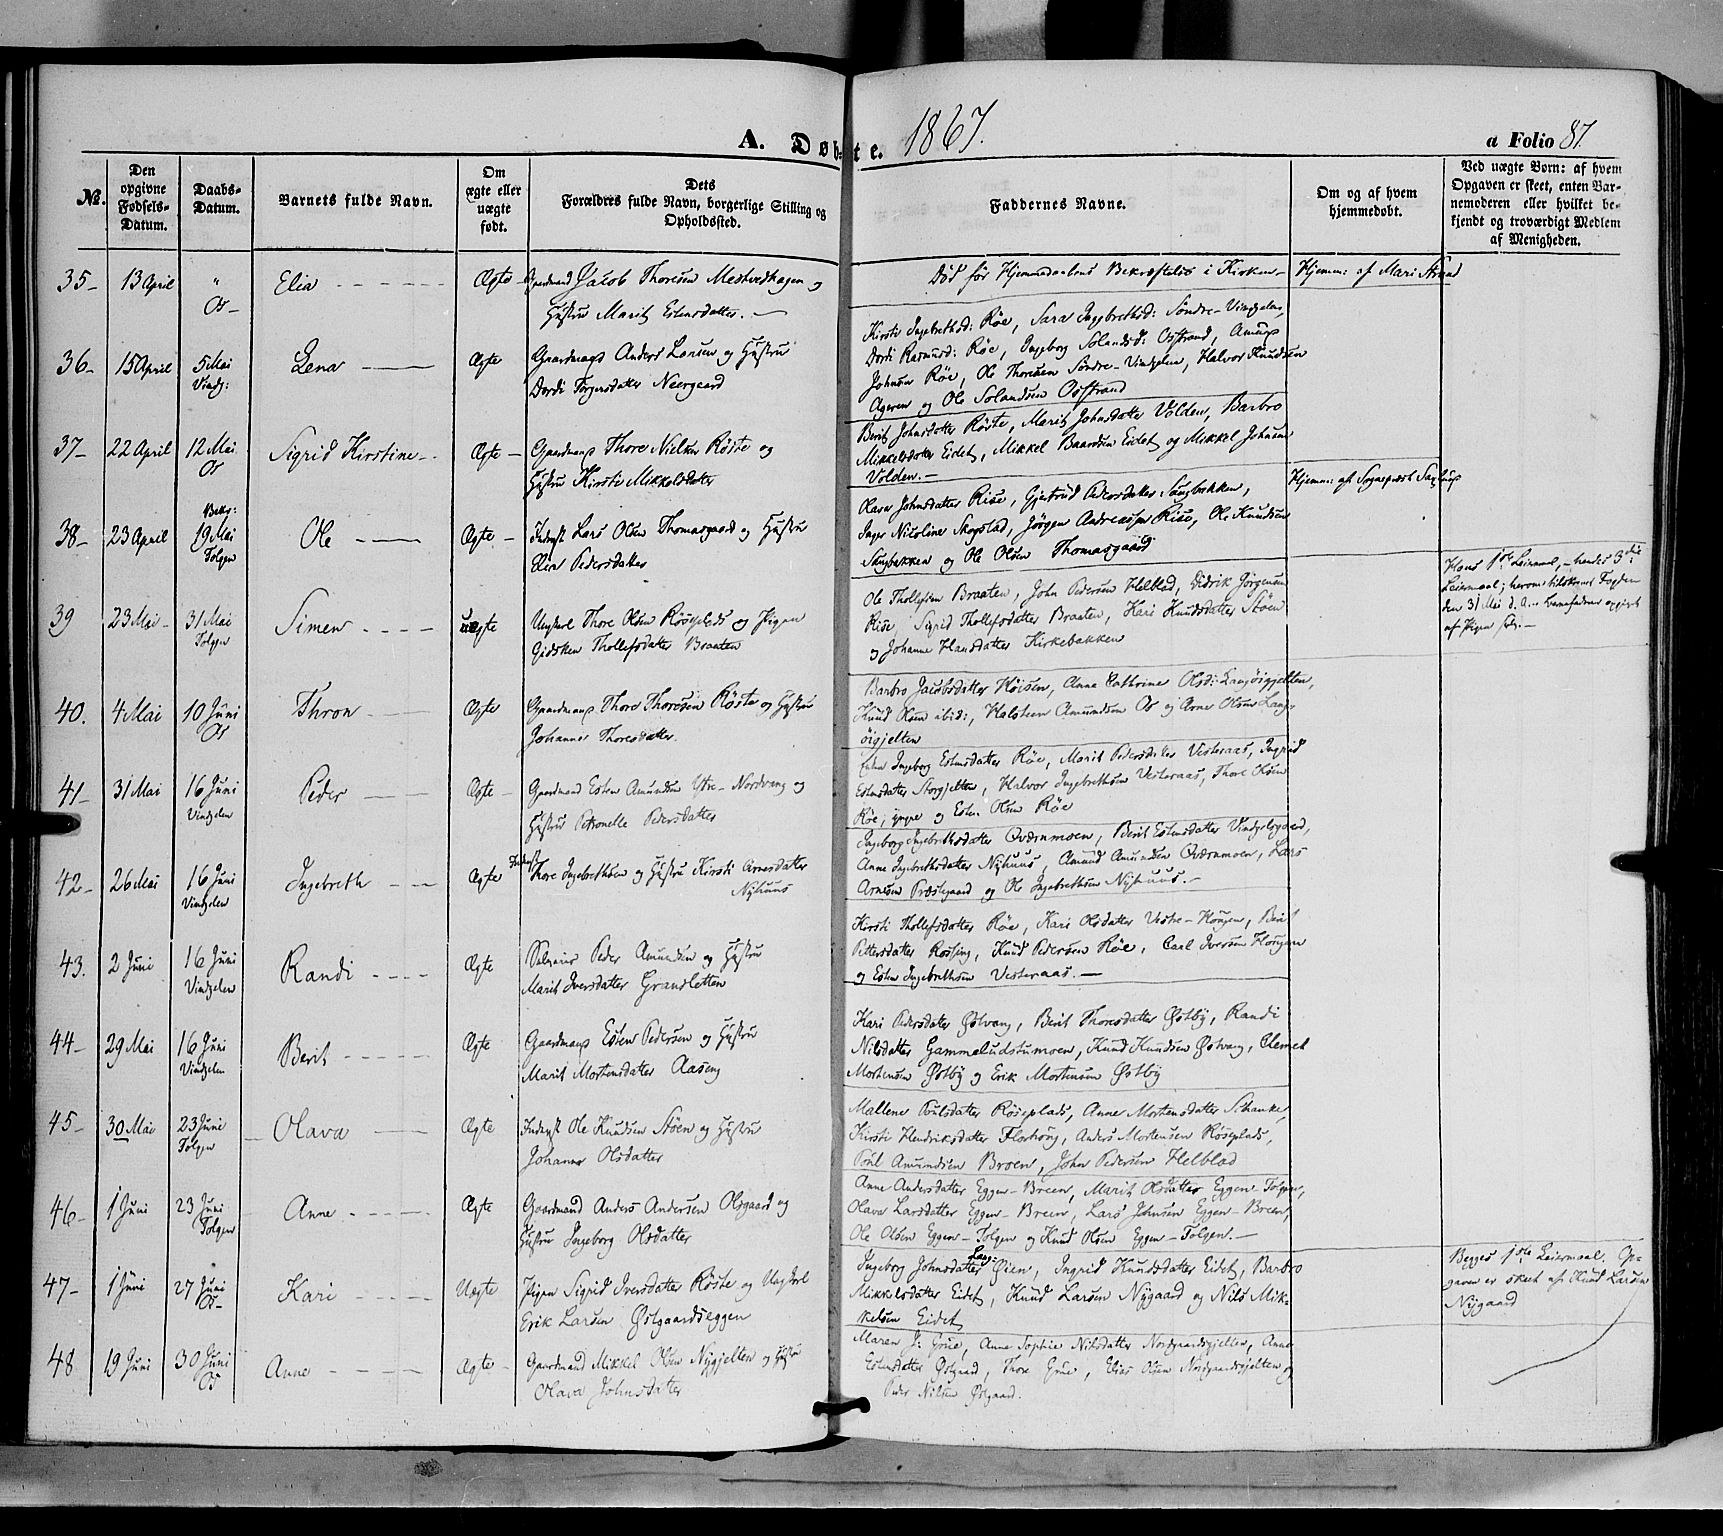 A. Døbte. 1867.
a Folio 87.
No.
Den opgivne Fødsels-Datum.
Daabs-Datum.
Barnets fulde Navn.
Om ægte eller uægte født.
Dets Forældres fulde Navn, borgerlige Stilling og Opholdssted.
Faddernes Navne.
Om og af hvem hjemmedøbt.
Ved uægte Børn: af hvem Opgaven er skeet, enten Barnemoderen eller hvilket bekjendt og troværdigt Medlem af Menigheden.
35- 13 April " Os- Elia Ægte- Jacob Thoresen og
Hustru Marit Estensdatter.
Død før Hjemmedaabens Bekræftelse i Kirken- Hjemm: af Mari
36- 15 April 5 Mai Vindg: Lena Ægte Gaardmand Anders Larsen og Hustru
Dordi Torgersdatter Neergaard
Kirsti Ingebrethsd: Røe, Sara Ingebrethsd: Søndre-Vindgelen,
Dordi Rasmusd: Røe, Ingeborg Solandsd: Osstrand, Amund
Johnsen Røe, Ole Thoresen Søndre-Vindgelen, Halvor Knudsen
Ageren og Ole Solandsen Osstrand
37- 22 April 12 Mai Os Sigrid Kirstine Ægte Gaardmand Thore Nielsen Røste og
Hustru Kirsti Mikkelsdatter
Berit Johnsdatter Røste, Marit Johnsdatter Volden, Barbro
Mikkelsdatter Eidet, Mikkel Baardsen Eidet og Mikkel Johnsen
Volden.-
38- 23 April Bekr: 19 Mai Tolgen Ole Ægte Inderst Lars Olsen Thomasgaard og Hustru
Pedersdatter
Johnsdatter Rise, Gjertrud Pedersdatter
Inger Nicoline Skogstad, Jørgen Andreasen Rise, Ole Knudsen
og Ole Olsen Thomasgaard
Hjemm: af Sognepræst
39 23 Mai 31 Mai Tolgen Simen uægte Ungkarl Thore Olsen Røseplads og Pigen
Gidsken Thollefsdatter Braaten
Ole Thollefsen Braaten, John Pedersen Helblad, Didrik Jørgensen
Rise, Sigrid Thollefsdatter Braaten, Kari Knudsdatter Støen
og Johanne Hansdatter Kirkebakken
Hans 1ste Leiermaal, - hendes 3die
Leiermaal; herom tilskrevet Fogden
den 31 Mai d. A.- Barnefader opgivet
af Pigen
40. 4 Mai 10 Juni Os Thron Ægte Gaardmand Thore Thoresen Røste og Hustru
Johanne Thoresdatter.
Barbro Jacobsdatter Høisen, Anne Cathrine Olsd: Langøigjelten,
Knud Olsen ibid:, Halsteen Amundsen Os og Arne Olsen Lang-
øigjelten
41- 31 Mai 16 Juni Vindgelen Peder Ægte Gaardmand Esten Amundsen Ytre-Nordvang og
Hustru Petronelle Pedersdatter
Ingeborg Estensdatter Røe, Marit Pedersdatter Vesteraas, Ingrid
Estensdatter Storgjelten, Halvor Ingebrethsen Vesteraas, Thore Olsen
Røe, yngre og Esten Olsen Røe
42- 26 Mai 16 Juni Vindgelen Ingebreth Ægte Inderst Thore Ingebrethsen og Hustru Kirsti Arnesdatter
Nyhuus
Ingeborg Ingebrethsdatter Qværnmoen, Berit Estensdatter Vindgelgaard,
Anne Ingebrethsdatter Nyhuus, Amund Amundsen Qværnmoen, Lars
Arnesen Præstgaard og Ole Ingebrethsen Nyhuus.-
43. 2 Juni 16 Juni Vindgelen Randi Ægte Peder Amundsen og Hustru
Marit Iversdatter Grandletten
Kirsti Thollefsdatter Røe, Kari Olsdatter Vestre-Hougen, Berit
Pettersdatter Røsseng, Knud Pedersen Røe, Carl Iversen Hougen
og Esten Ingebrethsen Vesteraas.-
44- 29 Mai 16 Juni Vindgelen Berit Ægte Gaardmand Esten Pedersen og Hustru
Marit Mortensdatter Aaseng
Kari Pedersdatter Østvang, Berit Thoresdatter Østby, Randi
Nilsdatter Gammeludstumoen, Knud Knudsen Østvang, Clemet
Mortensen Østby og Erik Mortensen Østby
45- 30 Mai 23 Juni Tolgen Olava Ægte Inderst Ole Knudsen Støen og Hustru
Johanne Olsdatter
Mallene Poulsdatter Røseplads, Anne Mortensdatter Schanke,
Kirsti Hendriksdatter Florhoug, Anders Mortensen Røseplads,
Poul Amundsen Broen, John Pedersen Helblad
46- 1 Juni 23 Juni Tolgen Anne Ægte Gaardmand Anders Andersen Olsgaard og
Hustru Ingeborg Olsdatter
Anne Andersdatter Eggen-Breen, Marit Olsdatter Eggen-Tolgen,
Olava Larsdatter Eggen-Breen, Lars Johnsen Eggen-Breen,
Ole Olsen Eggen-Tolgen og Knud Olsen Eggen-Tolgen.-
47- 1 Juni 27 Juni Os- Kari Uægte Pigen Sigrid Iversdatter Røste og Ungkarl
Erik Larsen Østgaardseggen
Ingeborg Johnsdatter Lang-Øien, Ingrid Knudsdatter Eidet, Barbro
Mikkelsdatter Eidet, Knud Larsen Nygaard og Nils Mik-
kelsen Eidet
Begges 1ste Leiermaal. Op-
gaven er skeet af Knud Larsen
Nygaard
48 19 Juni 30 Juni Os Anne Ægte Gaardmand Mikkel Olsen Nygjelten og Hustru
Olava Johnsdatter
Maren J: Grue, Anne Sophie Nilsdatter Nordgaardsgjelten, Anne
Estensdatter Østgaard, Thore Grue, Elias Olsen Nordgaardsgjelten og
Peder Nilsen Østgaard.